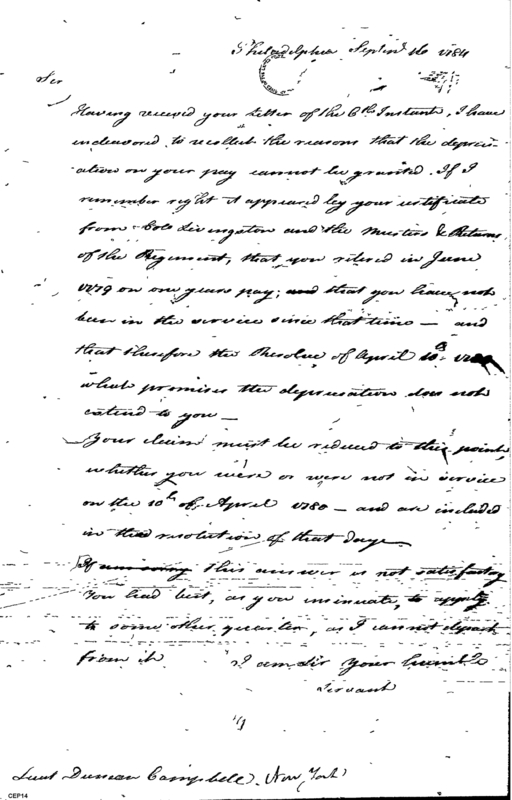 Philadelphia Septem 16 1784
Sir
Having received your Letter of the 6th Instant, I have
endeavored to recollect the reasons that the depreci-
ation on your pay cannot be granted. If I
remember right it appeared by your certificate
from Colo Livingston and the Musters & Returns
of the Regiment, that you retired in June
1779 on one years pay; and that you have not
been in the service since that time — and
that therefore the Resolve of April 10th 1780
what promises the depreciation does not
extend to you —
Your claim must be reduced to this point,
whether you were or were not in service
on the 10th of April 1780 — and are included
in the resolution of that day.
If this answer is not satisfactory
You had best, as you insinuate, to apply
to some other quarter, as I cannot depart
from it I am Sir your humble
Servant
Lieut Duncan Campbell. New York
CEP14